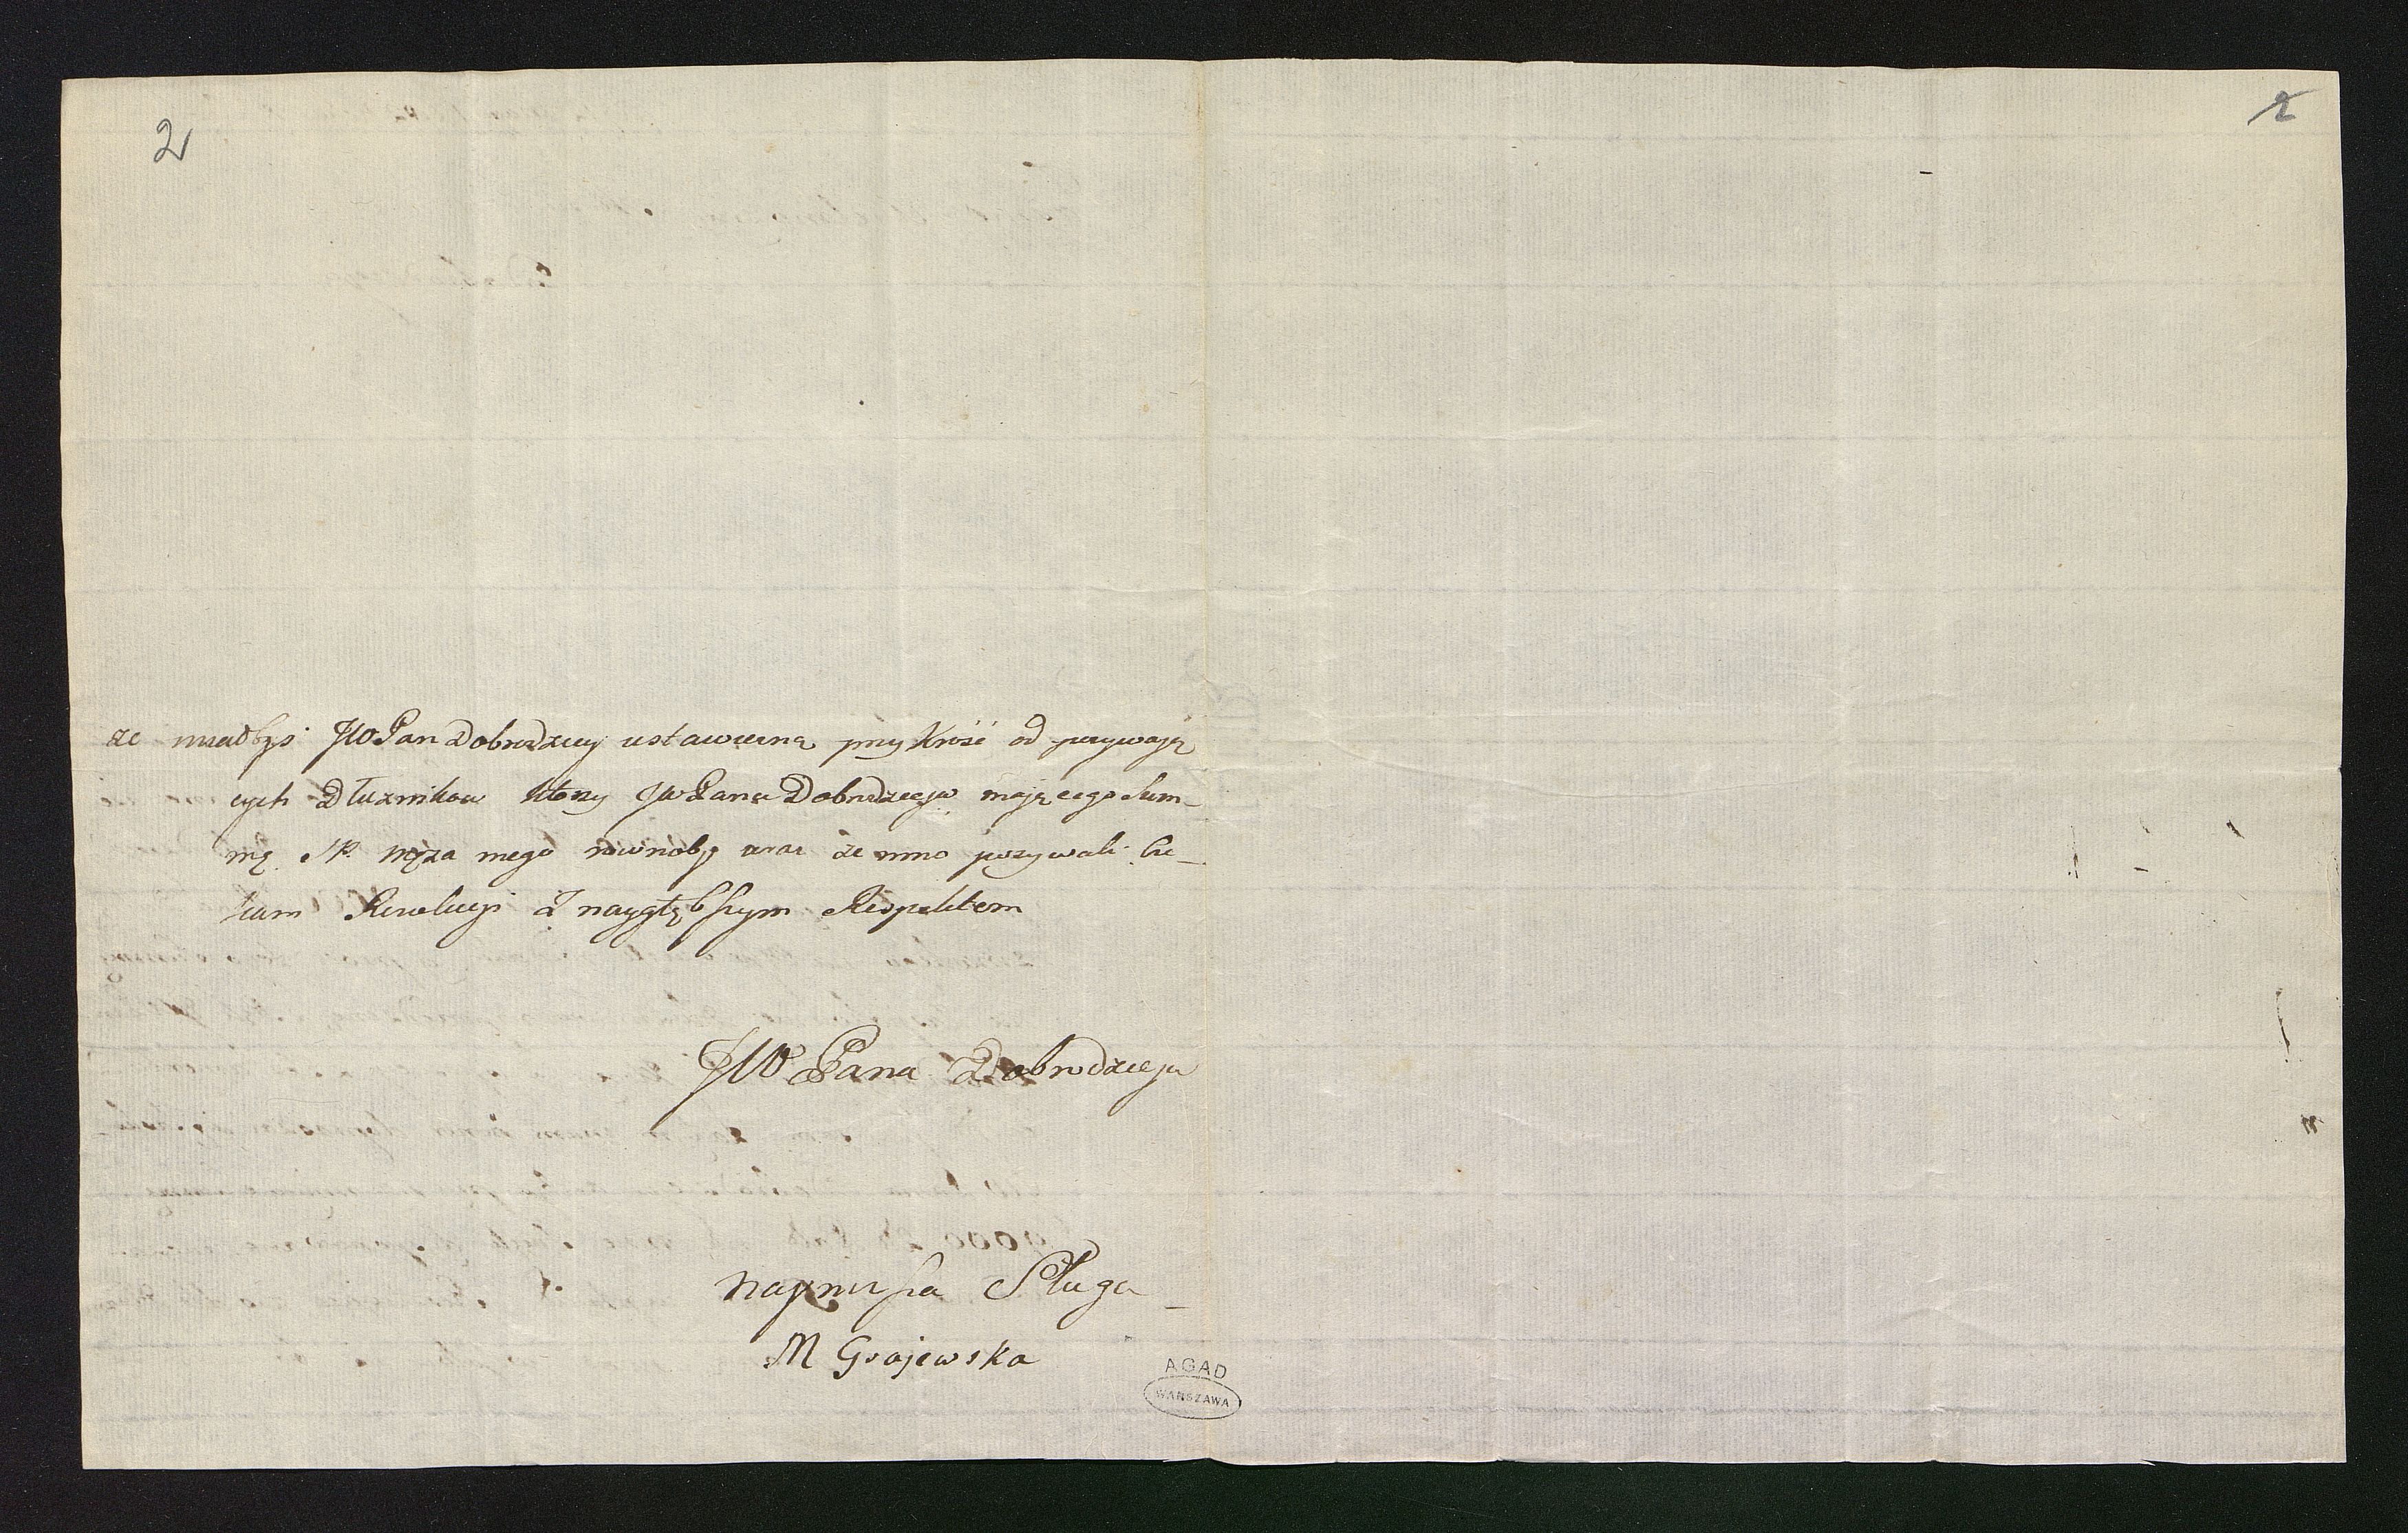 2
2
że miałbyś JWPan Dobrodziey ustawiczną przykrość od pozywaią
cych Dłuznikow ktorzy JWPana Dobrodzieja mającego Sum-
mę ŚP. męża mego rownoby wraz ze mno pozywali
Rewolucyi Z naygłębszym Respektem
JW Pana Dobrodzieja
nayniższa Sługa
M Grajewska
AGAD
WARSZAWA